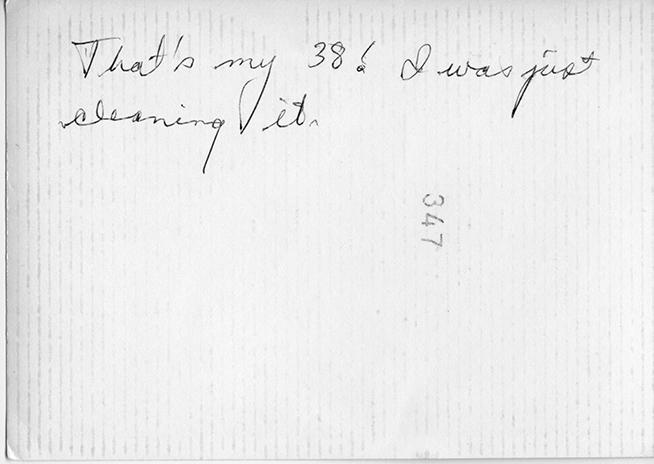 That's my 38! I was just
cleaning it.
347